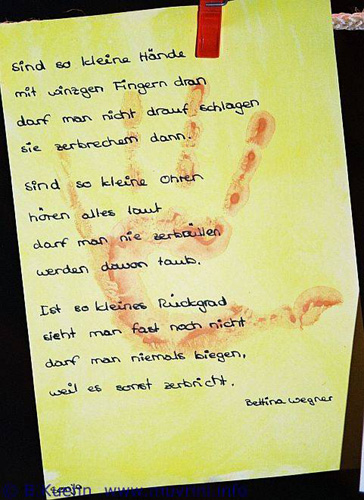 Sind so kleine Hände
mit winzgen Fingern dran
darf man nicht drauf schlagen
sie zerbrechen dann.
Sind so kleine Ohren
hören alles laut
darf man nie zerbrüllen
werden davon taub.
Ist so kleines Rückgrad
sieht man fast noch nicht
darf man niemals biegen,
weil es sonst zerbricht.
Bettina Wegner